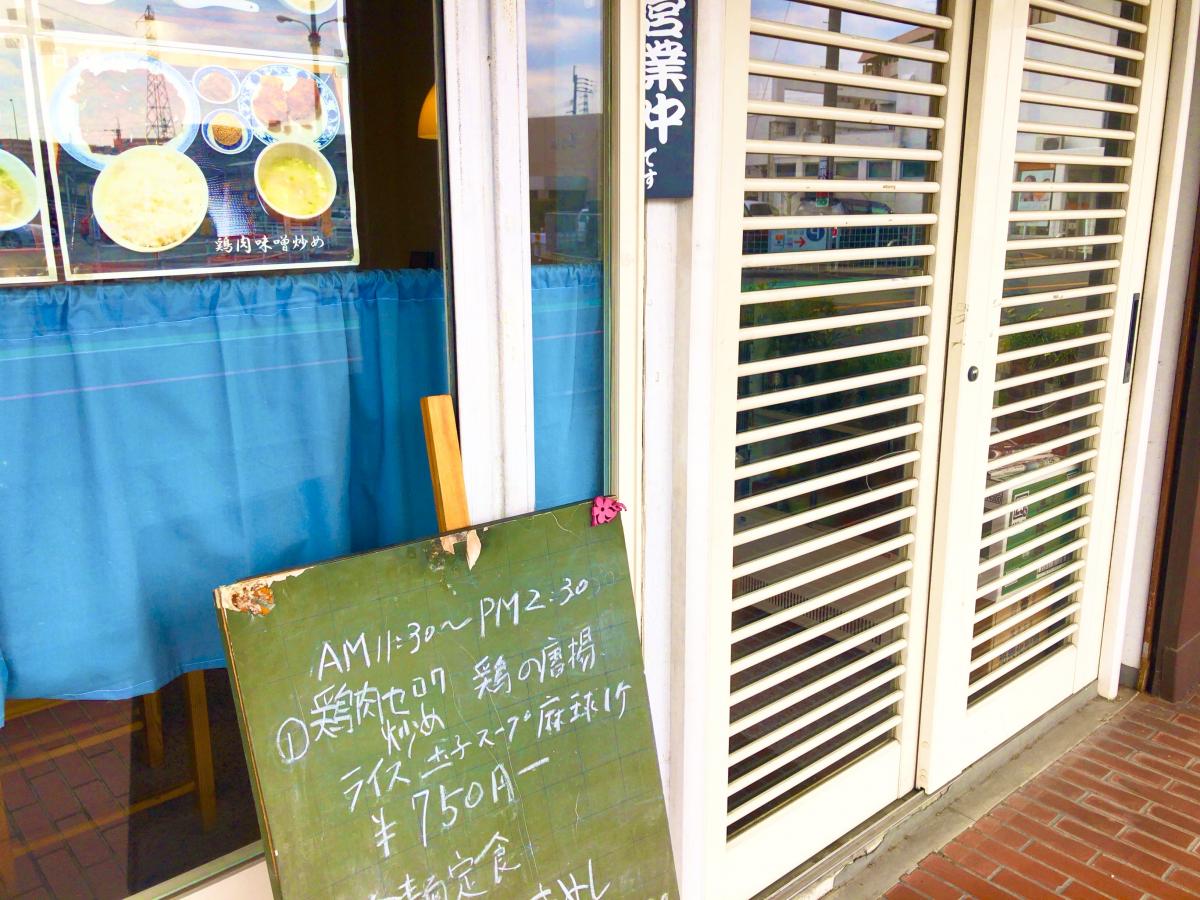 鶏肉味噌炒め
営業中
です
AM11:30～PM2:30
①鶏肉セロリ
炒め
鶏の唐揚
ライス 玉子スープ 麻球1ケ
¥750円ー
麺定食